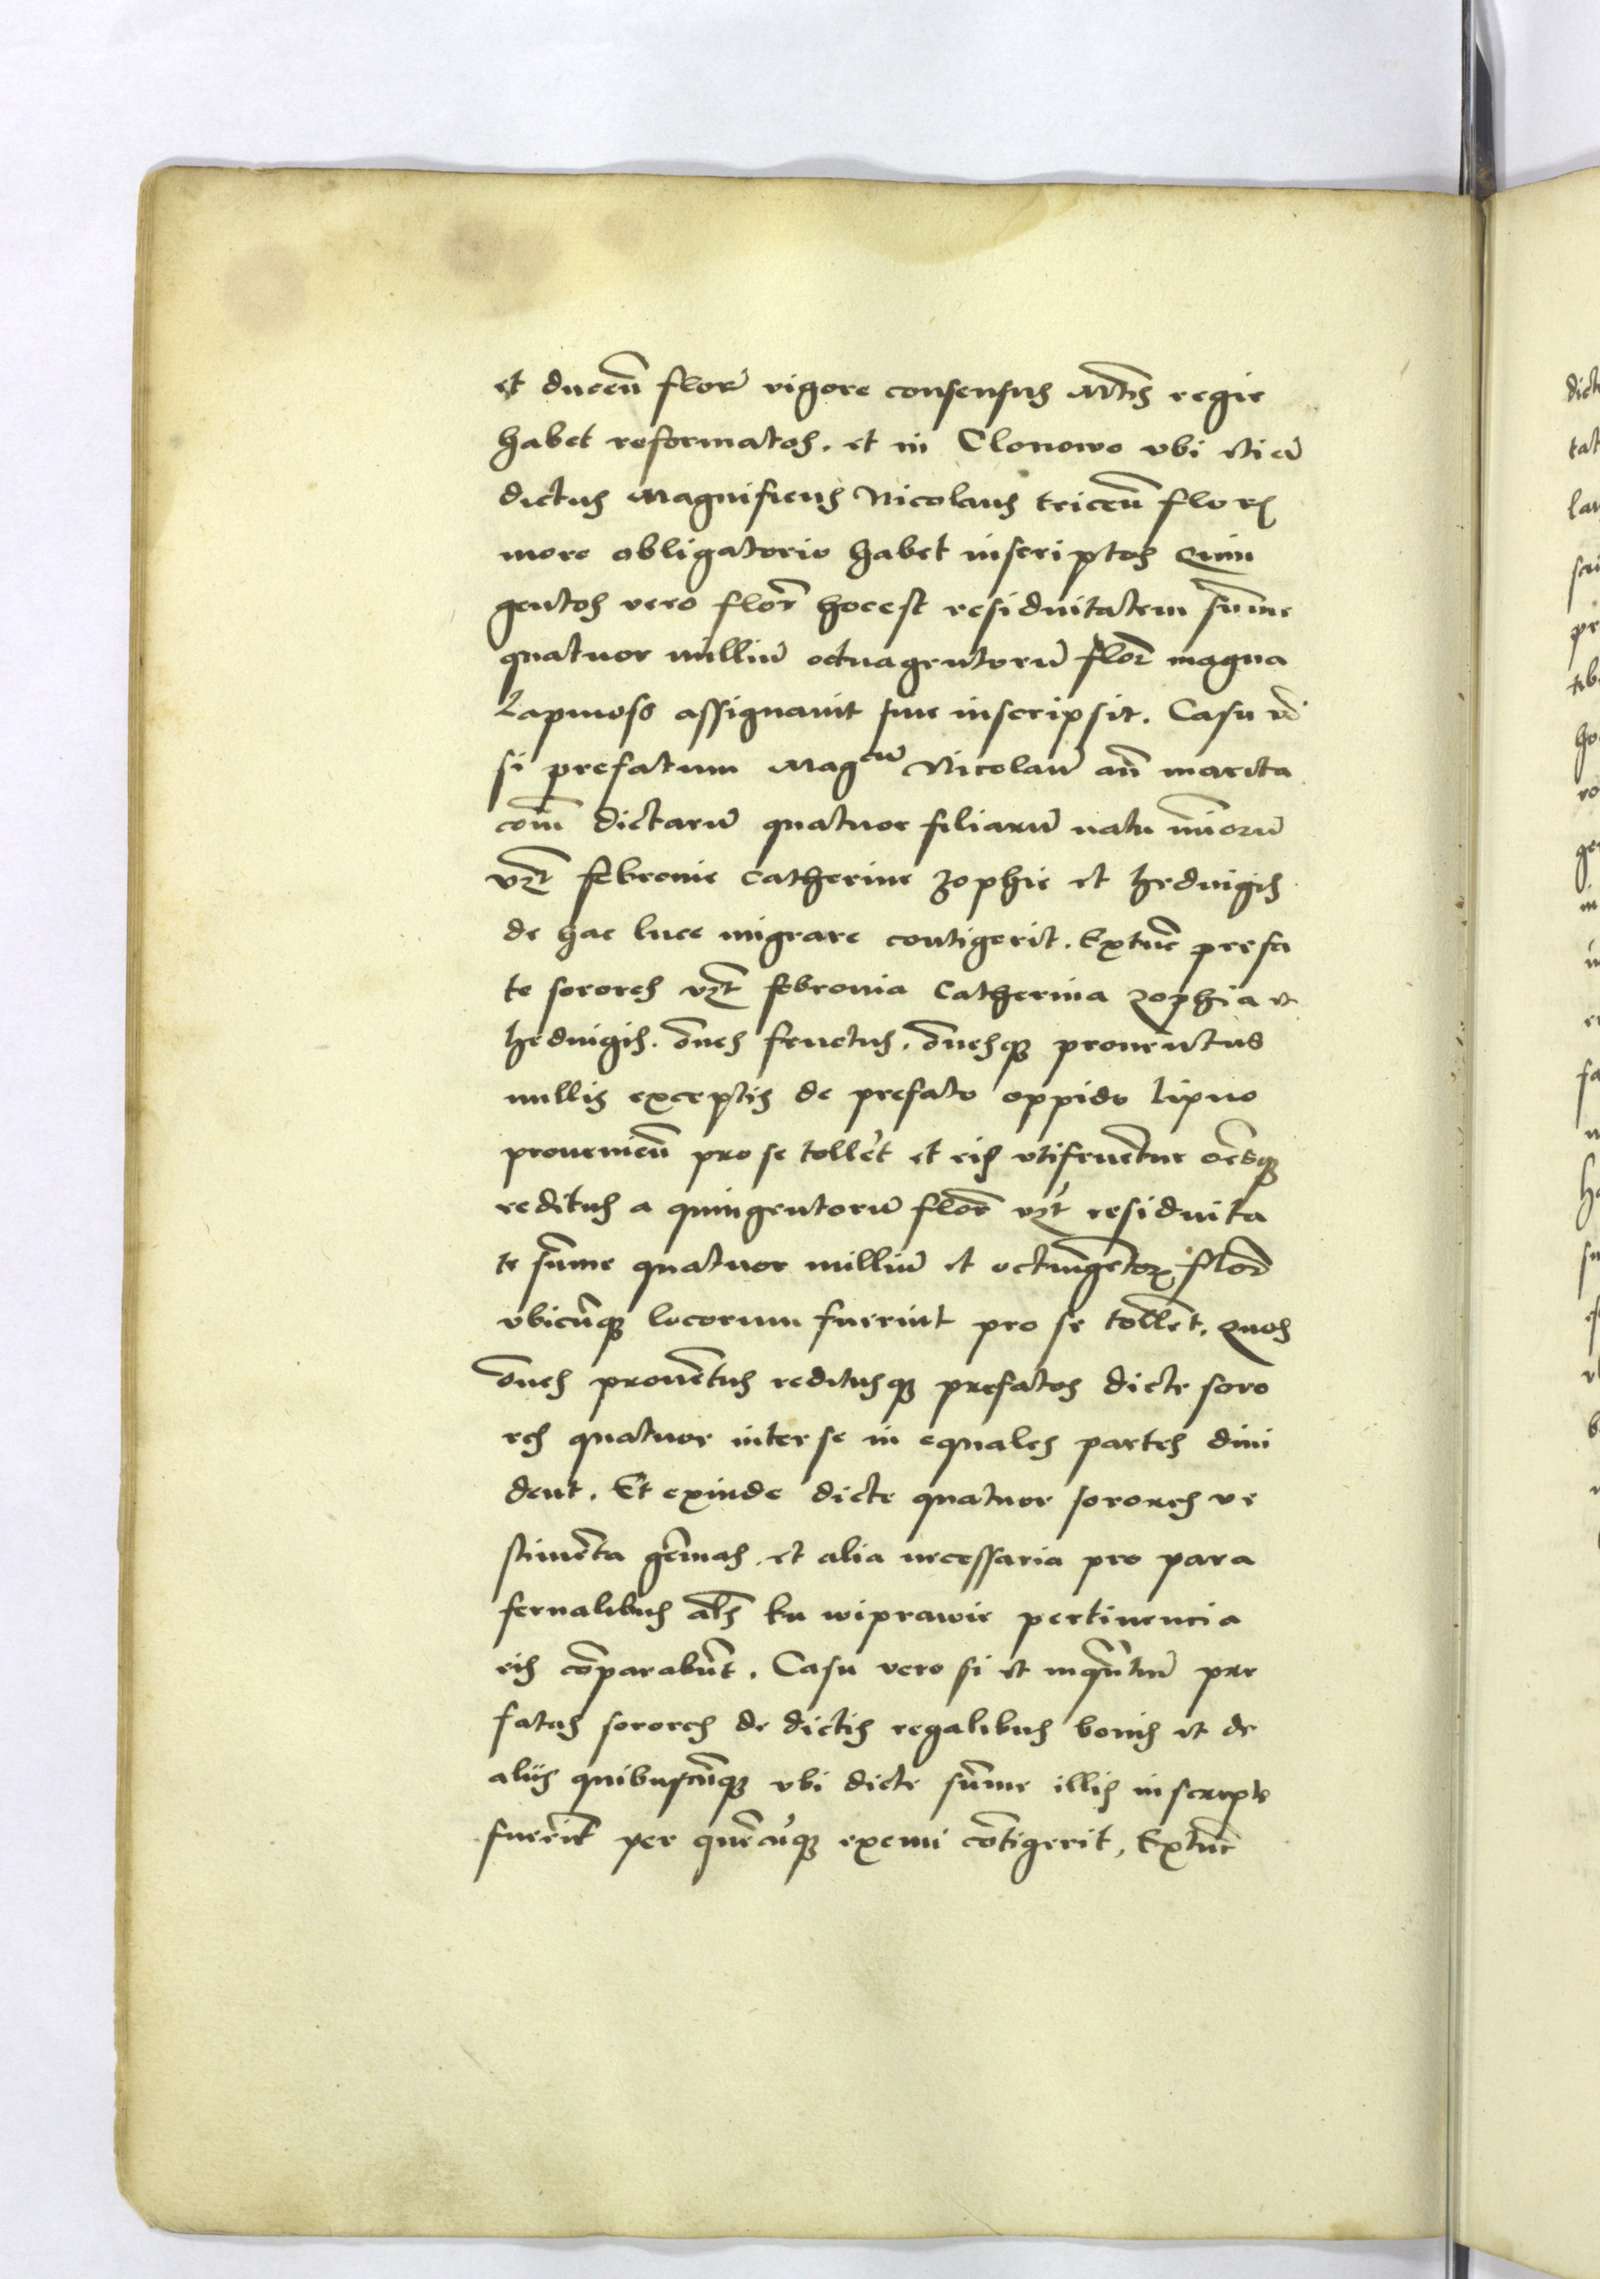 et ducen̄ flor̄ vigore consensus Mt̄is regie
habet reformatos. et in Clonowo vbi etiā
dictus Magnificus Nicolaus tricen̄ floꝝ
more obligatorio habet inscriptos Quin
gentos vero flor̄ hocest residuitatem sūme
quatuor milliū octuagentorū flor̄ magna
Lapuoss assignauit siue inscripsit. Casu v̄o
si prefatum Magcū Nicolaū an̄ marita
com̄ dictarū quatuor filiarū natu mīorū
vꝫt febronie Catherine Zophie et Hedvigis
de hac luce migrare contigerit. Extūc prefa
te sorores vꝫt febronia Catherina Zophia et
Hedvigis. ōnes fructus. ōnesqꝫ prouentus
nullis exceptis de prefato oppido Lipno
prouenien̄ pro se tollēt et eis vtifruentur oēsqꝫ
reditus a quingentorū flor̄ vꝫt residuita
te sūme quatuor milliū et octingētoꝝ flor̄
vbicūqꝫ locorum fuerint pro se tollēt. Quos
ōnes prouētus reditusqꝫ prefatos dicte soro
res quatuor inter se in equales partes diui
dent. Et exinde dicte quatuor sorores ve
stimēta gēmas. et alia necessaria pro para
fernalibus al̄s ku wiprawie pertinencia
eis cōparabūt. Casu vero si et inqūtū pre
fatas sorores de dictis regalibus bonis et de
aliis quibuscūqꝫ vbi dicte sūme illis inscripte
fuerīt per quēcūqꝫ exemi cōtigerit, Extūc